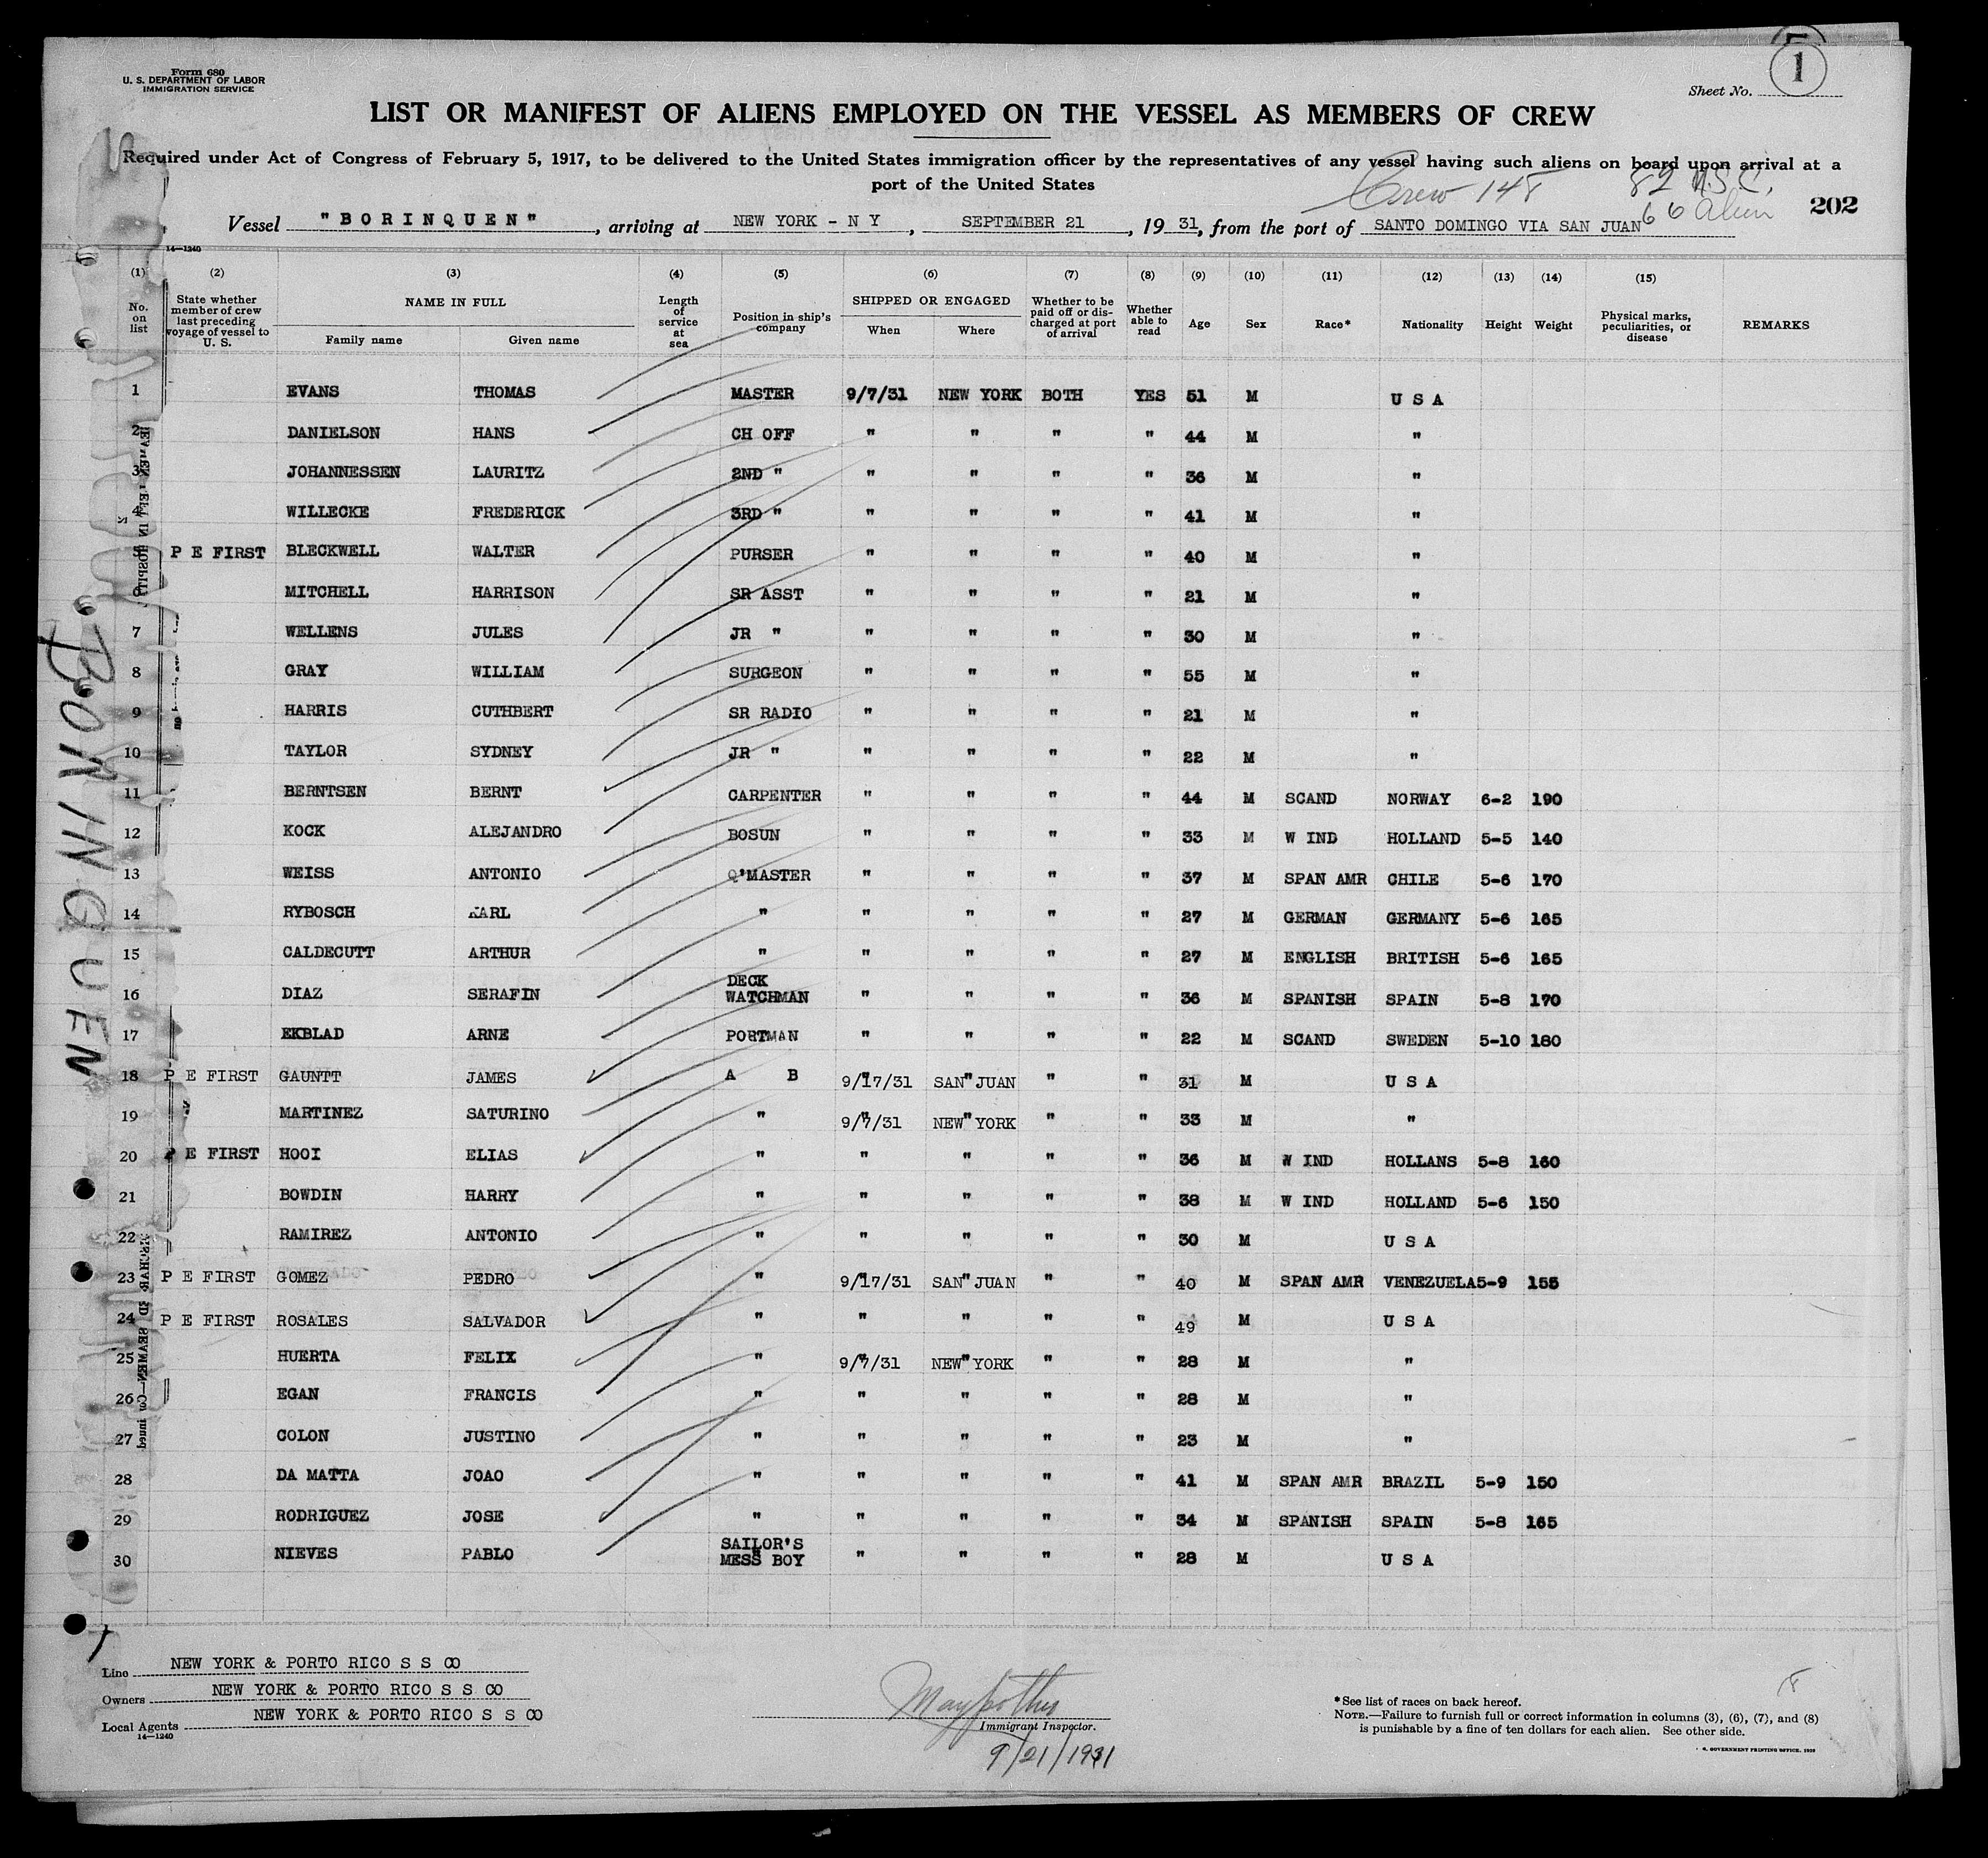 Form 680
U. S. DEPARTMENT OF LABOR
IMMIGRATION SERVICE
Sheet No. 1
LIST OR MANIFEST OF ALIENS EMPLOYED ON THE VESSEL AS MEMBERS OF CREW
Required under Act of Congress of February 5, 1917, to be delivered to the United States immigration officer by the representatives of any vessel having such aliens on board upon arrival at a
port of the United States
Crew 148
82 U.S.C.
66 Alien
202
Vessel "BORINQUEN", arriving at NEW YORK - N Y, SEPTEMBER 21, 1931, from the port of SANTO DOMINGO VIA SAN JUAN
14—1240
(1) (2) (3) (4) (5) (6) (7) (8) (9) (10) (11) (12) (13) (14) (15)
No. on list State whether member of crew last preceding voyage of vessel to U. S. NAME IN FULL Family name Given name Length of service at sea Position in ship's company SHIPPED OR ENGAGED When Where Whether to be paid off or discharged at port of arrival Whether able to read Age Sex Race* Nationality Height Weight Physical marks, peculiarities, or disease REMARKS
1 EVANS THOMAS MASTER 9/7/31 NEW YORK BOTH YES 51 M U S A
2 DANIELSON HANS CH OFF " " " " 44 M "
3 JOHANNESSEN LAURITZ 2ND " " " " " 36 M "
4 WILLECKE FREDERICK 3RD " " " " " 41 M "
P E FIRST BLECKWELL WALTER PURSER " " " " 40 M "
6 MITCHELL HARRISON SR ASST " " " " 21 M "
7 WELLENS JULES JR " " " " " 30 M "
8 GRAY WILLIAM SURGEON " " " " 55 M "
9 HARRIS CUTHBERT SR RADIO " " " " 21 M "
10 TAYLOR SYDNEY JR " " " " " 22 M "
11 BERNTSEN BERNT CARPENTER " " " " 44 M SCAND NORWAY 6-2 190
12 KOCK ALEJANDRO BOSUN " " " " 33 M W IND HOLLAND 5-5 140
13 WEISS ANTONIO Q'MASTER " " " " 37 M SPAN AMR CHILE 5-6 170
14 RYBOSCH KARL " " " " " 27 M GERMAN GERMANY 5-6 165
15 CALDECUTT ARTHUR " " " " " 27 M ENGLISH BRITISH 5-6 165
16 DIAZ SERAFIN DECK WATCHMAN " " " " 36 M SPANISH SPAIN 5-8 170
17 EKBLAD ARNE PORTMAN " " " " 22 M SCAND SWEDEN 5-10 180
18 P E FIRST GAUNTT JAMES A B 9/17/31 SAN JUAN " " 31 M U S A
19 MARTINEZ SATURINO " 9/7/31 NEW YORK " " 33 M "
20 P E FIRST HOOI ELIAS " " " " " 36 M W IND HOLLANS 5-8 160
21 BOWDIN HARRY " " " " " 38 M W IND HOLLAND 5-6 150
22 RAMIREZ ANTONIO " " " " " 30 M U S A
23 P E FIRST GOMEZ PEDRO " 9/17/31 SAN JUAN " " 40 M SPAN AMR VENEZUELA 5-9 155
24 P E FIRST ROSALES SALVADOR " " " " " 49 M U S A
25 HUERTA FELIX " 9/7/31 NEW YORK " " 28 M "
26 EGAN FRANCIS " " " " " 28 M "
27 COLON JUSTINO " " " " " 23 M "
28 DA MATTA JOAO " " " " " 41 M SPAN AMR BRAZIL 5-9 150
29 RODRIGUEZ JOSE " " " " " 34 M SPANISH SPAIN 5-8 165
30 NIEVES PABLO SAILOR'S MESS BOY " " " " 28 M U S A
BORINQUEN
Line NEW YORK & PORTO RICO S S CO
Owners NEW YORK & PORTO RICO S S CO
Local Agents NEW YORK & PORTO RICO S S CO
14—1240
Immigrant Inspector.
9/21/1931
*See list of races on back hereof.
NOTE.—Failure to furnish full or correct information in columns (3), (6), (7), and (8)
is punishable by a fine of ten dollars for each alien. See other side.